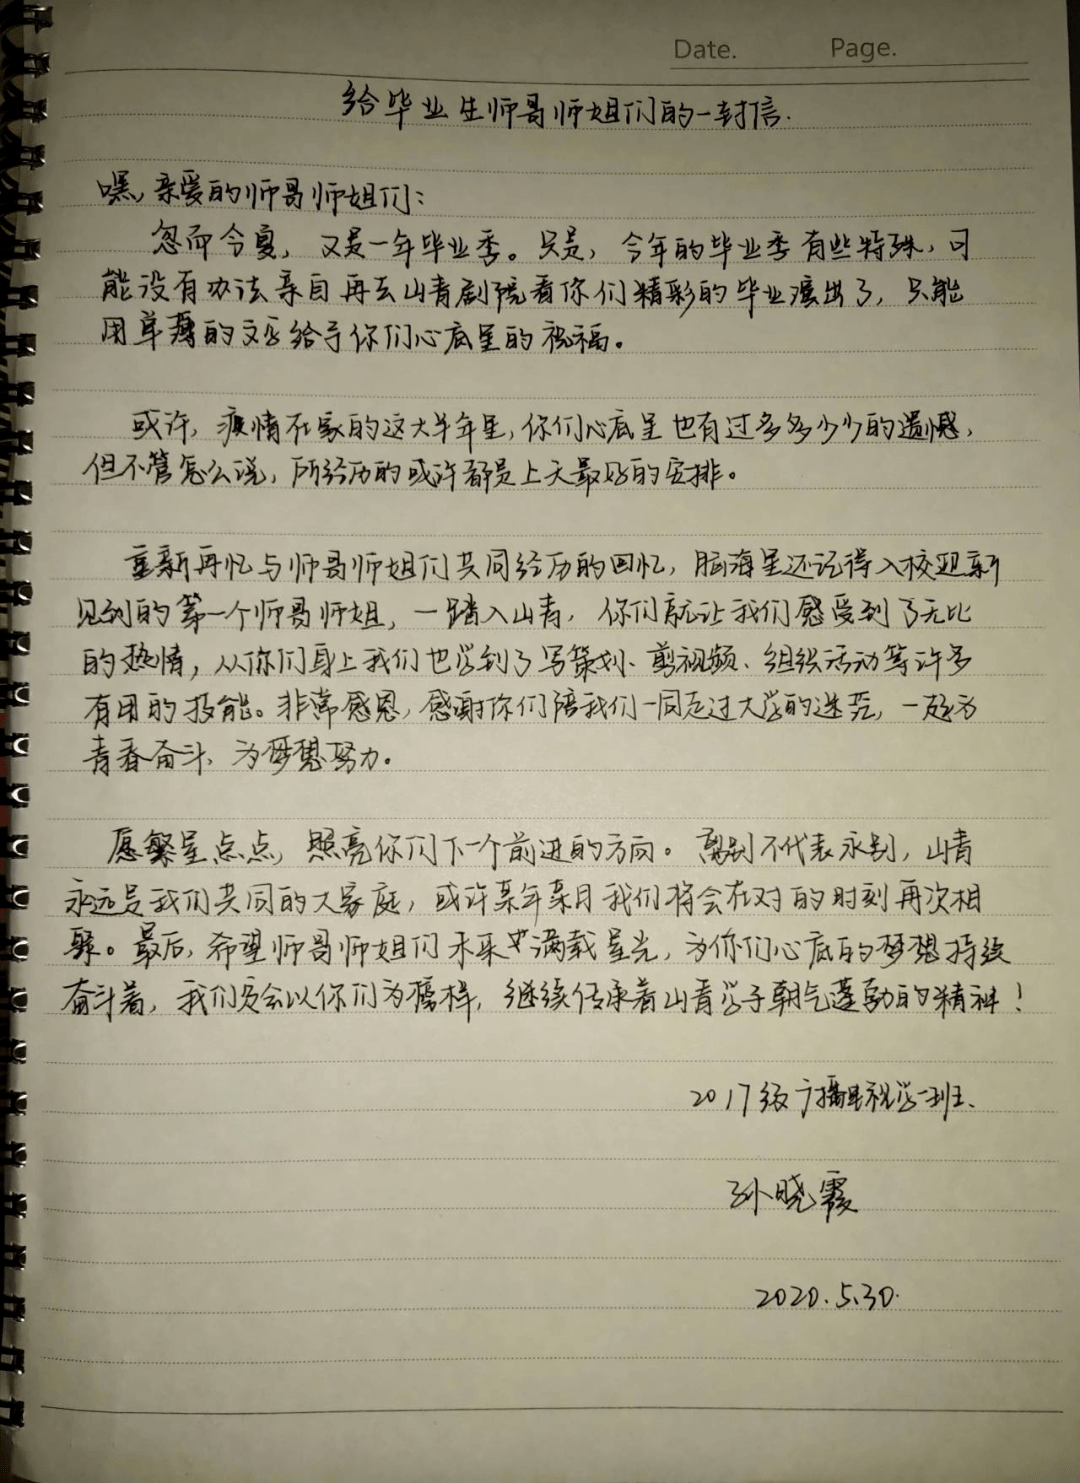 Date. Page.
给毕业生师哥师姐们的一封信.
嘿,亲爱的师哥师姐们:
忽而今夏,又是一年毕业季。只是,今年的毕业季有些特殊,可
能没有办法亲自再去山青剧院看你们精彩的毕业演出了,只能
用单薄的文字给予你们心底里的祝福。
或许,疫情在家的这大半年里,你们心底里也有过多多少少的遗憾,
但不管怎么说,所经历的或许都是上天最好的安排。
重新再忆与师哥师姐们共同经历的回忆,脑海里还记得入校迎新
见到的第一个师哥师姐,一踏入山青,你们就让我们感受到了无比
的热情,从你们身上我们也学到了写策划、剪视频、组织活动等许多
有用的技能。非常感恩,感谢你们陪我们一同走过大学的迷茫,一起为
青春奋斗、为梦想努力。
愿繁星点点,照亮你们下一个前进的方向。离别不代表永别,山青
永远是我们共同的大家庭,或许某年某月我们将会在对的时刻再次相
聚。最后,希望师哥师姐们未来也满载星光,为你们心底的梦想持续
奋斗着,我们会以你们为榜样,继续传承着山青学子朝气蓬勃的精神!
2017级广播电视学一班.
孙晓霞
2020.5.30.